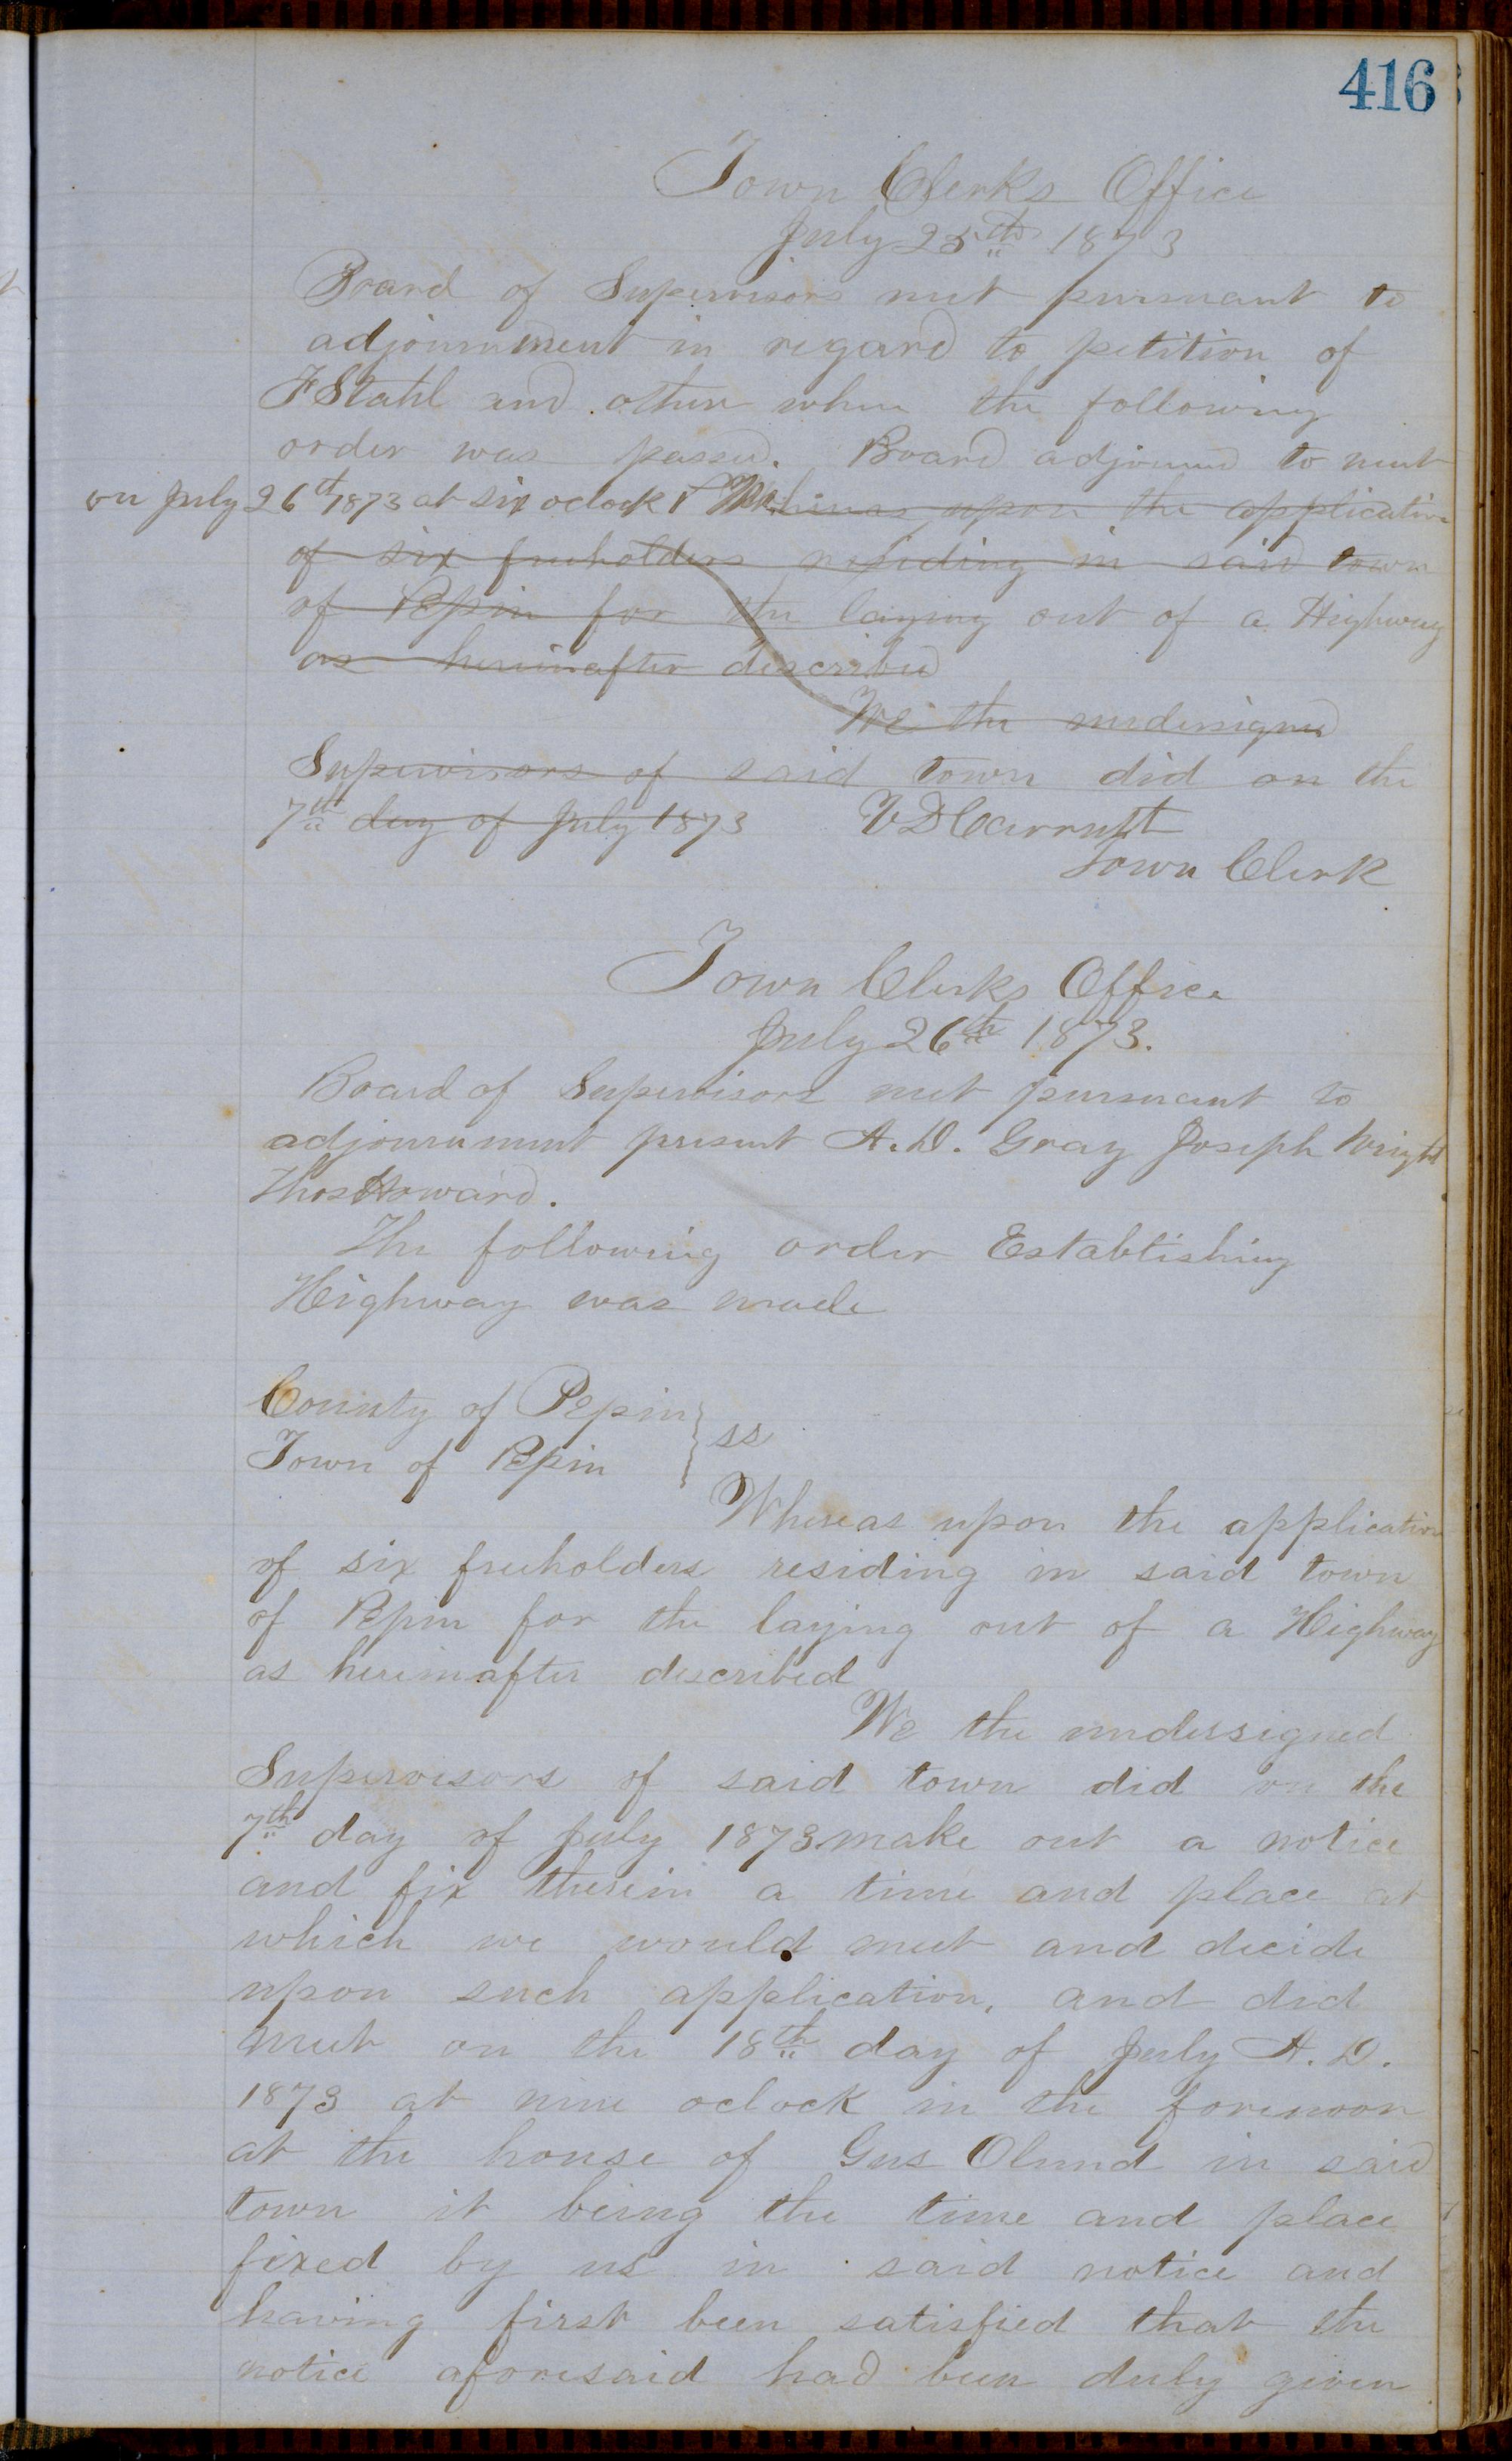 416
Town Clerks Office
July 25th 1873
Board of Supervisors met pursuant to
adjournment in regard to petition of
F Stahl and other when the following
order was passed. Board adjourned to meet
on July 26th 1873 at six oclock P M Whereas upon the application
of six freeholders residing in said town
of Pepin for the laying out of a Highway
as hereinafter described
We the undersigned
Supervisors of said town did on the
7th day of July 1873
Town Clerk
Town Clerks Office
July 26th 1873.
Board of Supervisors met pursuant to
adjournment present A. D. Gray Joseph Wright
Thos Howard.
The following order Establishing
Highway was made
County of Pepin } ss
Town of Pepin
Whereas upon the application
of six freeholders residing in said town
of Pepin for the laying out of a Highway
as hereinafter described
We the undersigned
Supervisors of said town did on the
7th day of July 1873 make out a notice
and fix therein a time and place at
which we would meet and decide
upon such application, and did
meet on the 18th day of July A. D.
1873 at nine oclock in the forenoon
at the house of Gus Olund in said
town it being the time and place
fixed by us in said notice and
having first been satisfied that the
notice aforesaid had been duly given